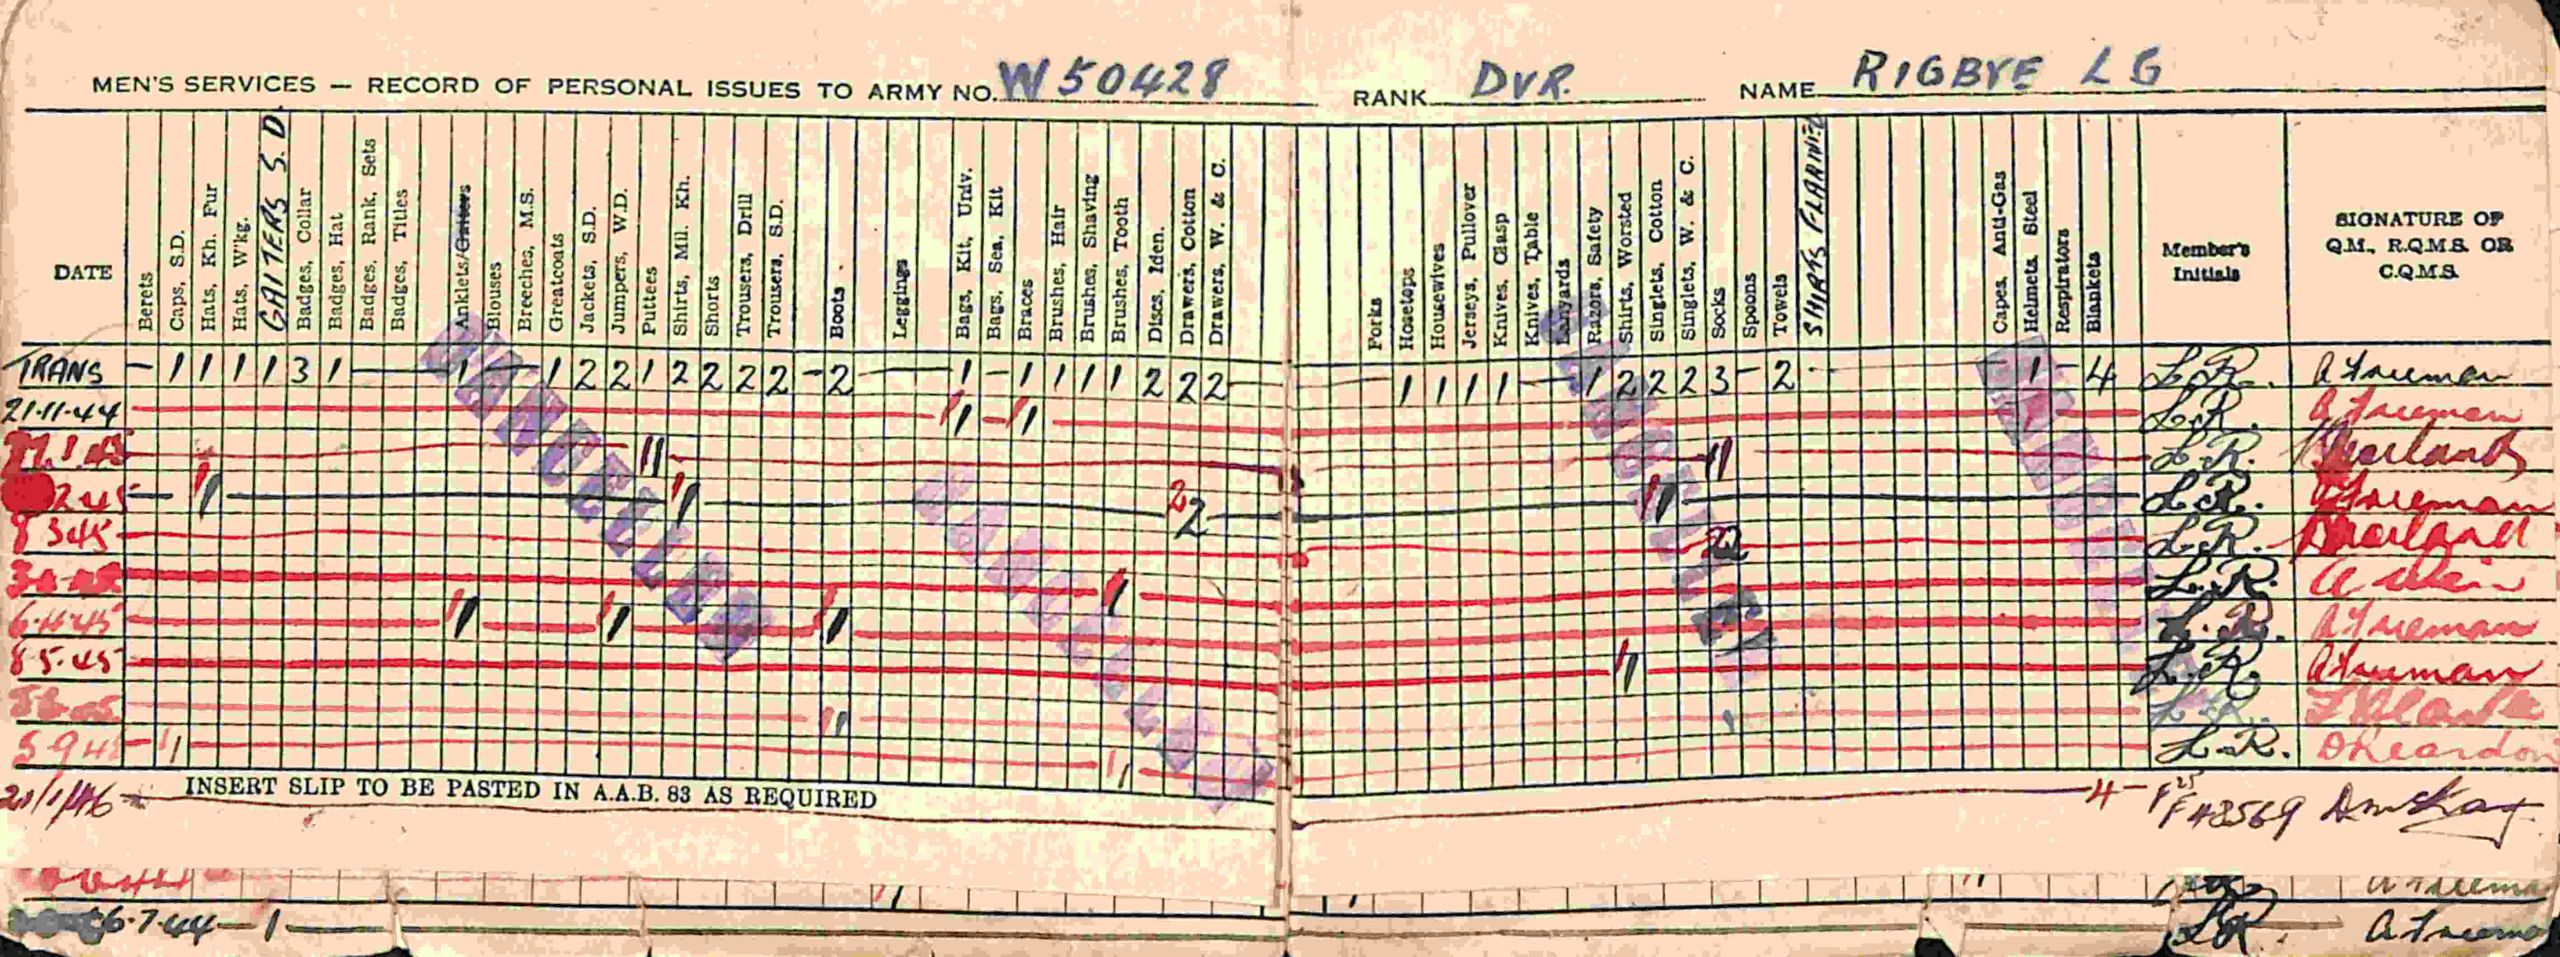 MEN'S SERVICES — RECORD OF PERSONAL ISSUES TO ARMY NO. W 50428 RANK DVR. NAME RIGBYE L G
DATE
Berets
Caps, S.D.
Hats, Kh. Fur
Hats, W'kg.
GAITERS S.D.
Badges, Collar
Badges, Hat
Badges, Rank, Sets
Badges, Titles
Anklets/Gaiters
Blouses
Breeches, M.S.
Greatcoats
Jackets, S.D.
Jumpers, W.D.
Puttees
Shirts, Mil. Kh.
Shorts
Trousers, Drill
Trousers, S.D.
Boots
Leggings
Bags, Kit, Univ.
Bags, Sea, Kit
Braces
Brushes, Hair
Brushes, Shaving
Brushes, Tooth
Discs, Iden.
Drawers, Cotton
Drawers, W. & C.
Forks
Hosetops
Housewives
Jerseys, Pullover
Knives, Clasp
Knives, Table
Lanyards
Razors, Safety
Shirts, Worsted
Singlets, Cotton
Singlets, W. & C.
Socks
Spoons
Towels
SHIRTS FLANNEL
Capes, Anti-Gas
Helmets, Steel
Respirators
Blankets
Member's Initials
SIGNATURE OF
Q.M., R.Q.M.S. OR
C.Q.M.S.
TRANS — 1 1 1 1 3 1 — 1 — 1 2 2 1 2 2 2 2 - 2 — 1 - 1 1 1 1 2 2 2 — 1 1 1 1 — 1 2 2 2 3 - 2 — 1 - 4 L.R. A Freeman
21.11.44 1 1 — 1 1 L.R. A Freeman
1.45 1 1 1 1 L.R.
2.45 1 1 1 1 2 2 1 1 L.R. A Freeman
8 3 45 2 2 L.R.
1 1 L.R.
6.4.45 1 1 1 1 1 1 L.R. A Freeman
8.5.45 1 1 L.R. A Freeman
1 1
5 9 45 1 1 1 1 L.R. D Reardon
INSERT SLIP TO BE PASTED IN A.A.B. 83 AS REQUIRED
21/1/46 4 F 48569
6.7.44 — 1 — LR. A Freema
CANCELLED
CANCELLED
CANCELLED
CANCELLED